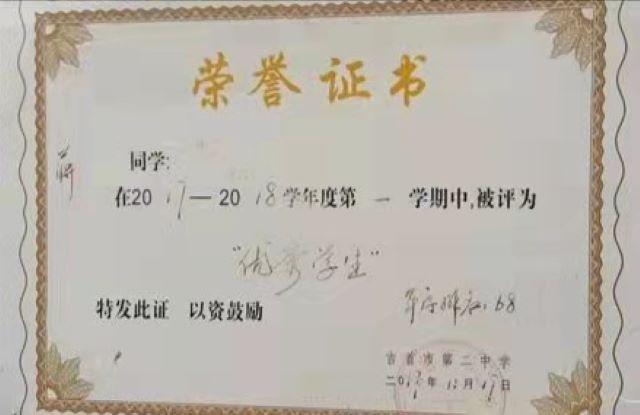 荣誉证书
蒋
同学:
在2017—2018学年度第一学期中,被评为
"优秀学生"
特发此证 以资鼓励
68
吉首市第二中学
二〇17年12月17日